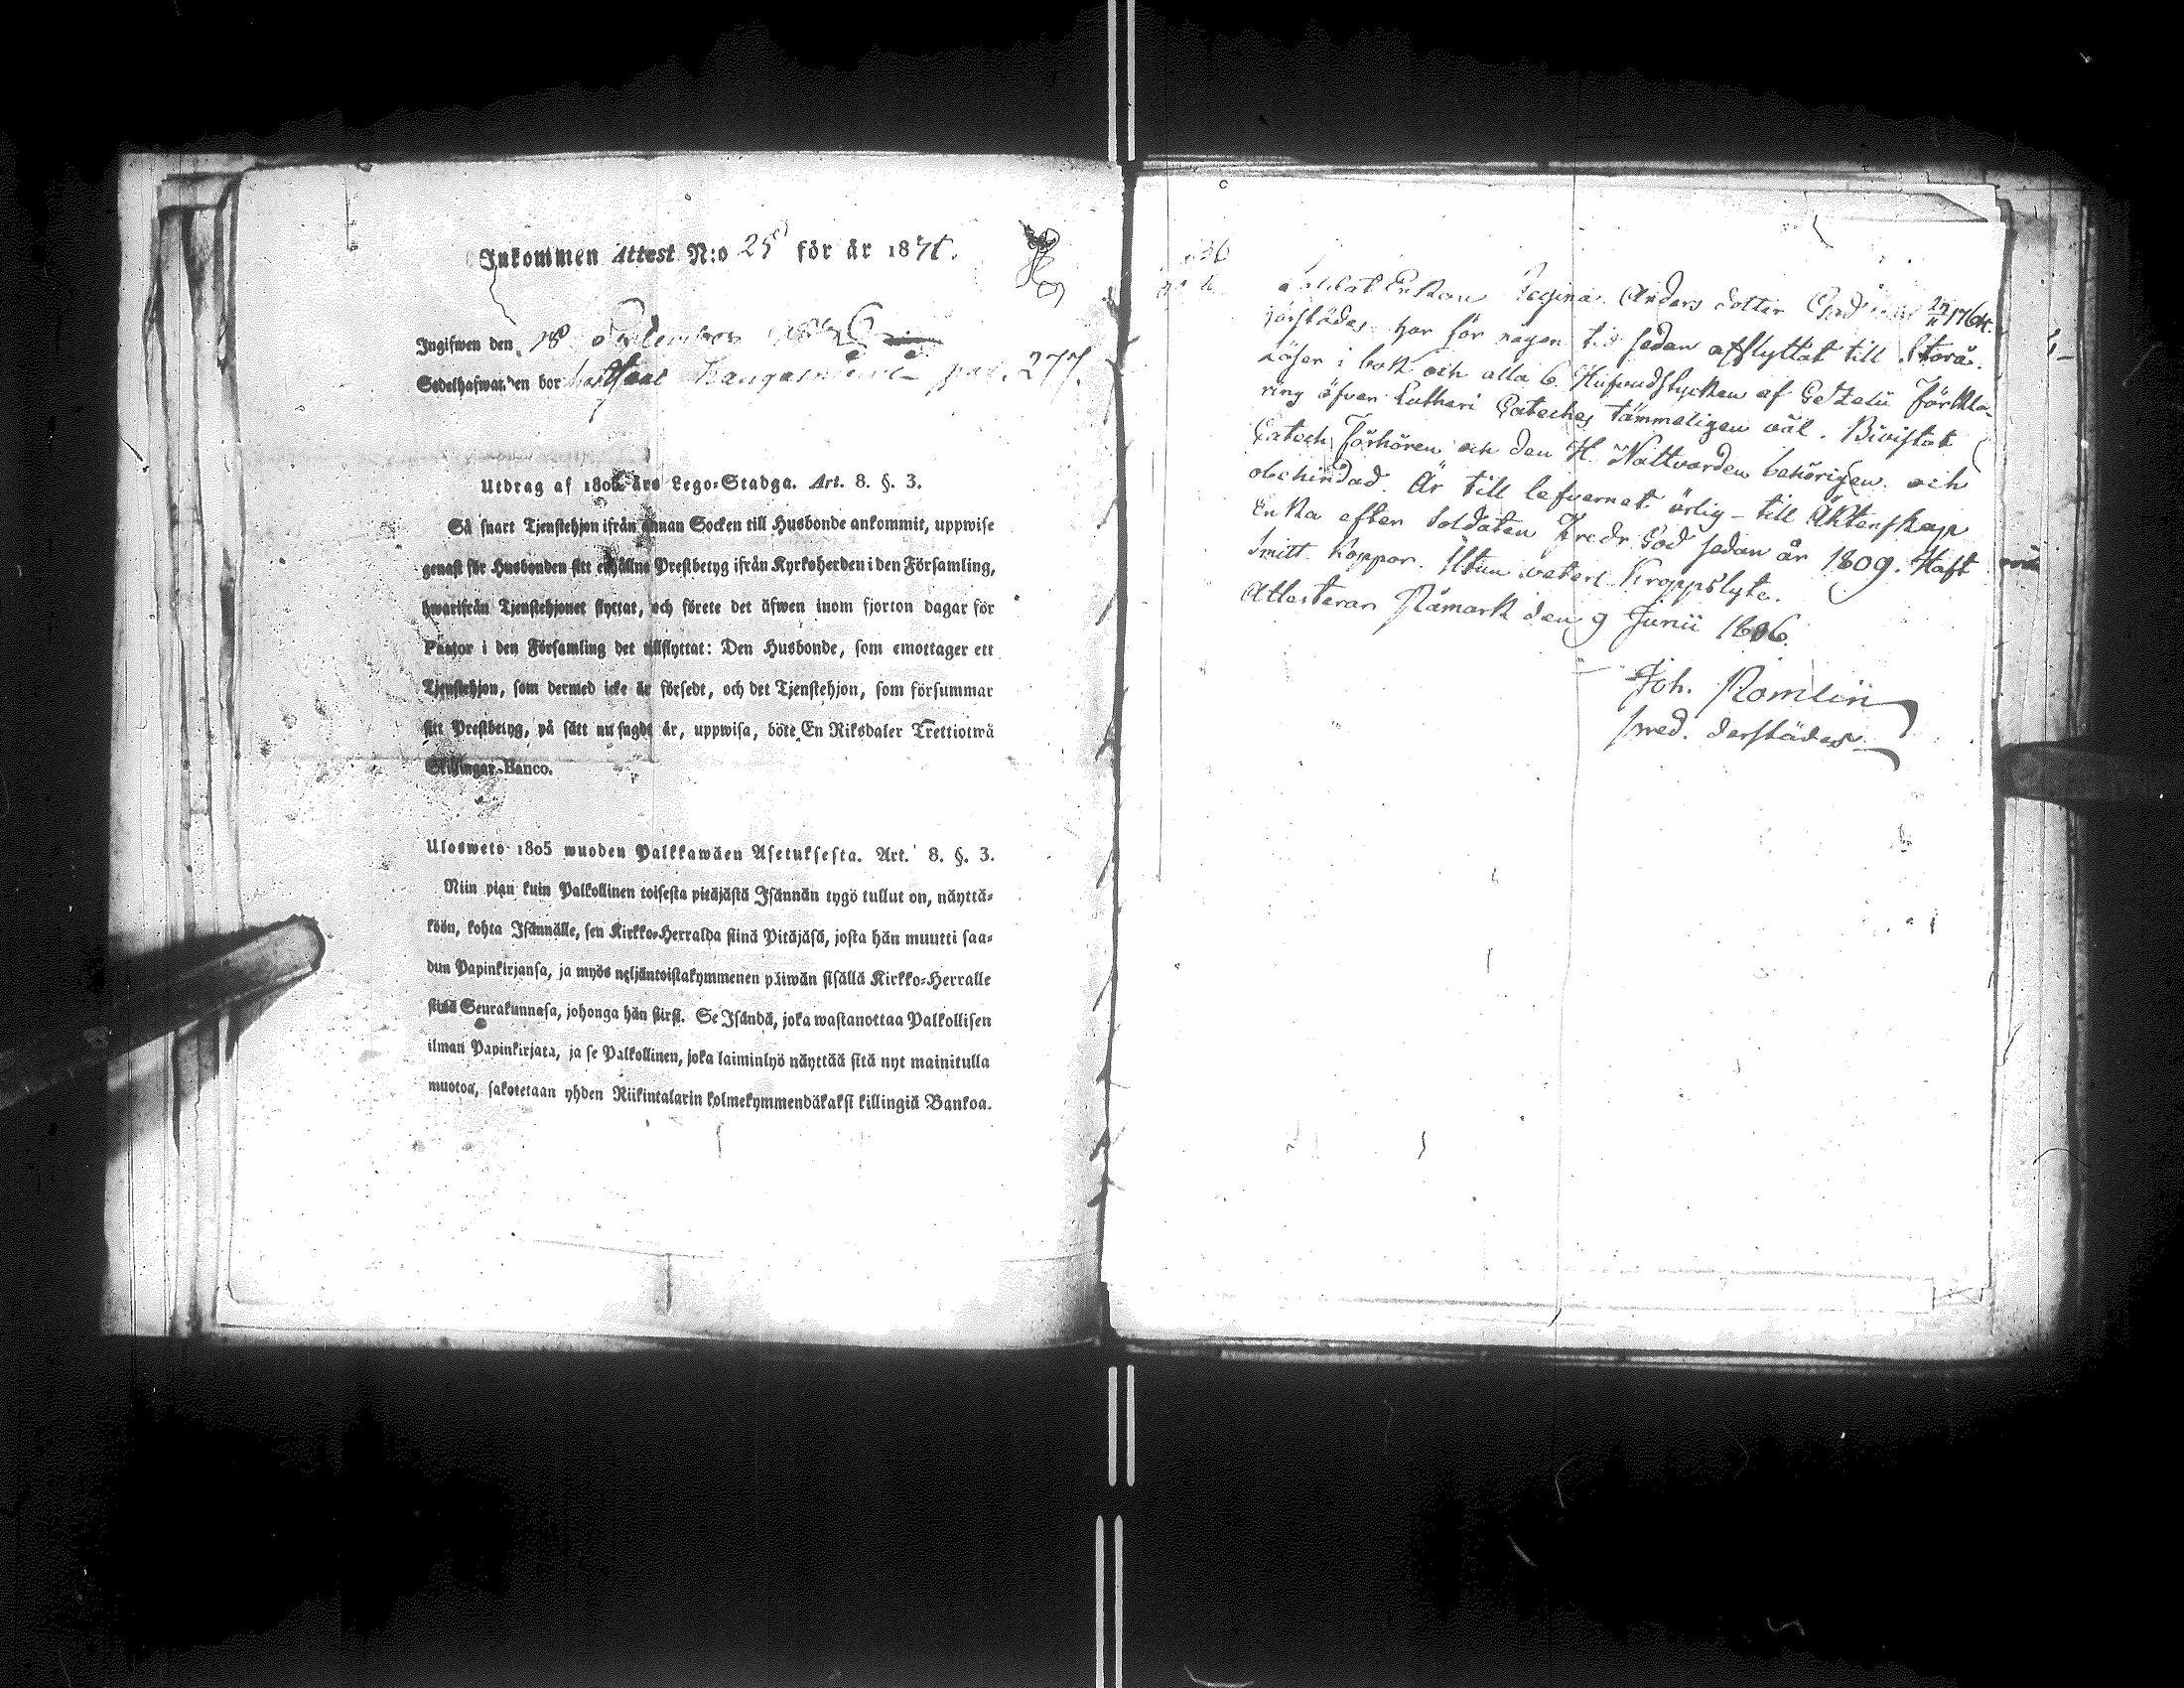 Inkommen Attest N:o 25 för år 18
Ingifwen den 18
Sedelhafwanden bor pag. 277.
Utdrag af 1805 års Lego-Stadga. Art. 8. §. 3.
Så snart Tjenstehjon ifrån annan Socken till Husbonde ankommit, uppwise
genast för Husbonden sitt erhållne Prestbetyg ifrån Kyrkoherden i den Församling,
hwarifrån Tjenstehjonet flyttat, och förete det äfwen inom fjorton dagar för
Pastor i den Församling det tillflyttat: Den Husbonde, som emottager ett
Tjenstehjon, som dermed icke är försedt, och det Tjenstehjon, som försummar
sitt Prestbetyg, på sätt nu sagdt är, uppwisa, böte En Riksdaler Trettiotwå
Skillingar Banco.
Ulosweto 1805 wuoden Palkkawäen Asetuksesta. Art. 8. §. 3.
Niin pian kuin Palkollinen toisesta pitäjästä Isännän tygö tullut on, näyttä-
köön, kohta Isännälle, sen Kirkko-Herralda siinä Pitäjäsä, josta hän muutti saa-
dun Papinkirjansa, ja myös neljäntoistakymmenen päiwän sisällä Kirkko-Herralle
siinä Seurakunnasa, johonga hän siirsi. Se Isändä, joka wastanottaa Palkollisen
ilman Papinkirjata, ja se Palkollinen, joka laiminlyö näyttää sitä nyt mainitulla
muotoa, sakotetaan yhden Riikintalarin kolmekymmendäkaksi killingiä Bankoa.
Soldat Enkan Regina Anders dotter
här städes har för någon tid sedan afflyttat till Storå.
Läser i bok och alla 6 Hufvudstycken af Gezelii Förkla-
ring äfven Lutheri Cateches tämmeligen väl. Bivistat
Catech Förhören och den H. Nattvarden behörigen och
obehindrad. Är till lefvernet ärlig - till Äktenskap
Enka efter Soldaten Fredr. God sedan år 1809. Haft
Smitt Koppor. Utan vetterl Kroppslyte.
Attesterar Råmark den 9 Junii
Joh. Romlin
pred. derstädes